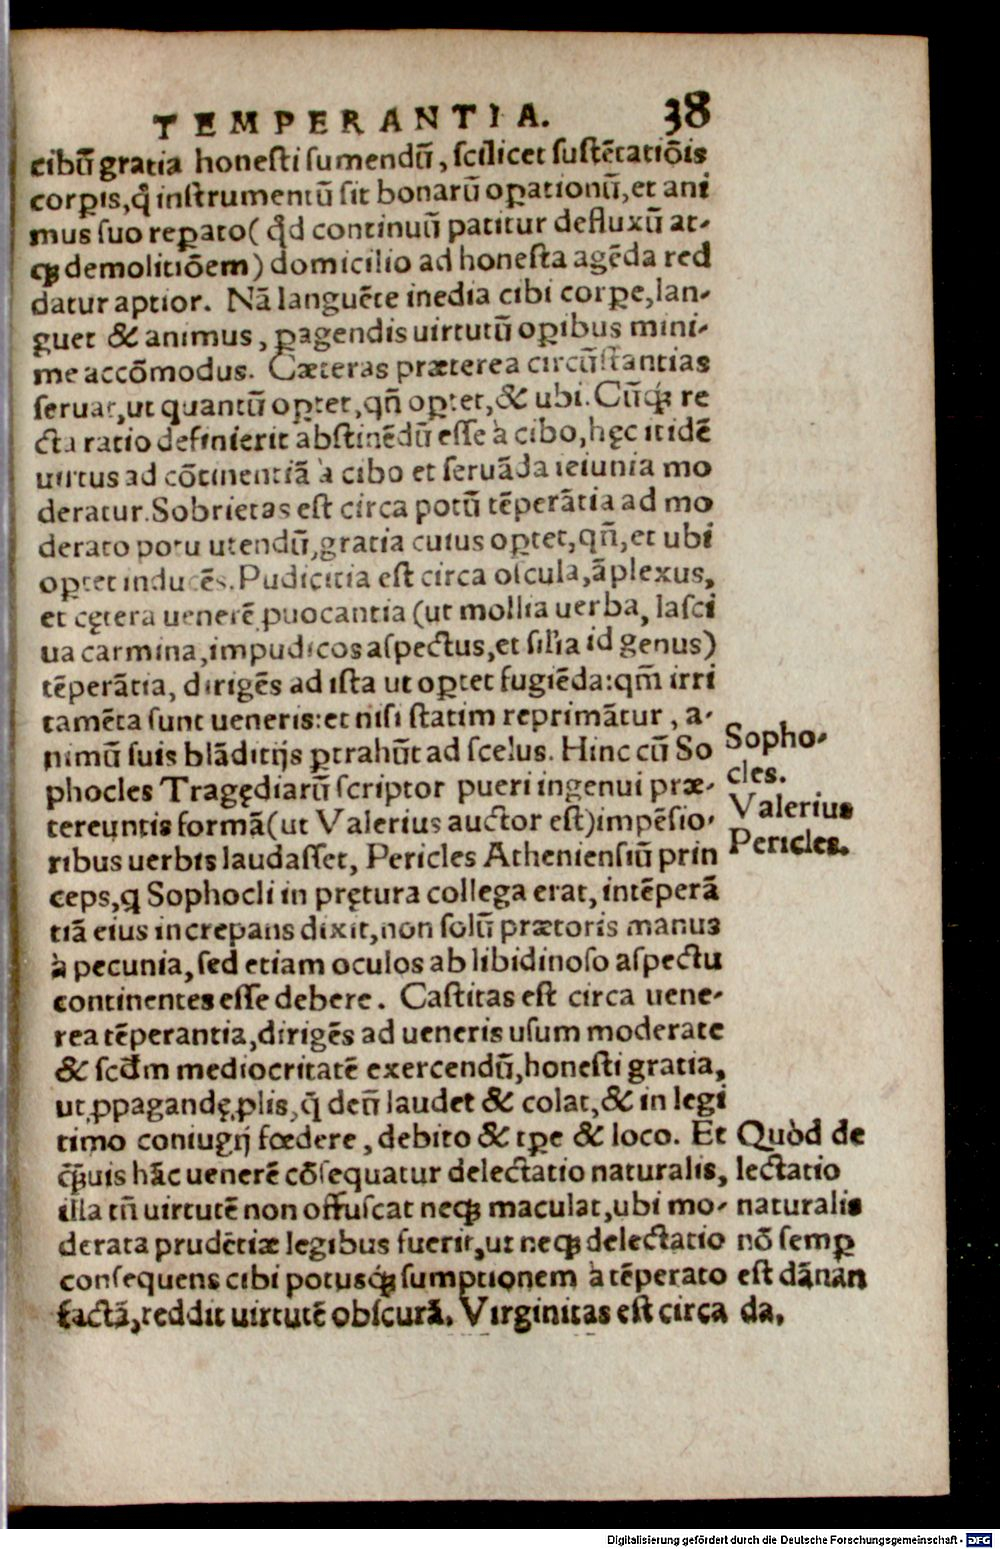 TEMPERANTIA. 38
cibū gratia honesti sumendū, scilicet sustētatiōis
corpis, q̓ instrumentū sit bonarū opationū, et ani
mus suo repato (qd continuū patitur defluxū at-
qꝫ demolitiōem) domicilio ad honesta agēda red
datur aptior. Nā languēte inedia cibi corpe, lan-
guet & animus, pagendis uirtutū opibus mini-
me accōmodus. Cæteras præterea circūstantias
seruat, ut quantū optet, qn̄ optet, & ubi. Cūqꝫ re
cta ratio definierit abstinēdū esse à cibo, hęc itidē
uirtus ad cōtinentiā à cibo et seruāda ieiunia mo
deratur. Sobrietas est circa potū tēperātia ad mo
derato potu utendū, gratia cuius optet, qn̄, et ubi
optet inducēs. Pudicitia est circa oscula, āplexus,
et cętera uenerē ꝓuocantia (ut mollia uerba, lasci
ua carmina, impudicos aspectus, et sil'ia id genus)
tēperātia, dirigēs ad ista ut optet fugiēda: qm̄ irri
tamēta sunt ueneris: et nisi statim reprimātur, a-
nimū suis blāditijs ptrahūt ad scelus. Hinc cū So
phocles Tragędiarū scriptor pueri ingenui præ-
tereuntis formā (ut Valerius auctor est) impēsio-
ribus uerbis laudasset, Pericles Atheniensiū prin
ceps, q Sophocli in prętura collega erat, intēperā
tiā eius increpans dixit, non solū prætoris manus
à pecunia, sed etiam oculos ab libidinoso aspectu
continentes esse debere. Castitas est circa uene-
rea tēperantia, dirigēs ad ueneris usum moderate
& scdm mediocritatē exercendū, honesti gratia,
ut ꝓpagandę ꝓlis, q̄ deū laudet & colat, & in legi
timo coniugij fœdere, debito & tpe & loco. Et
q̄ꝫuis hāc uenerē cōsequatur delectatio naturalis,
illa tn̄ uirtutē non offuscat neqꝫ maculat, ubi mo-
derata prudētiæ legibus fuerit, ut neqꝫ delectatio
consequens cibi potusqꝫ sumptionem à tēperato
factā, reddit uirtutē obscurā. Virginitas est circa
Sopho-
cles.
Valerius
Pericles.
Quòd de
lectatio
naturalis
nō semp
est dānan
da.
Digitalisierung gefördert durch die Deutsche Forschungsgemeinschaft - DFG